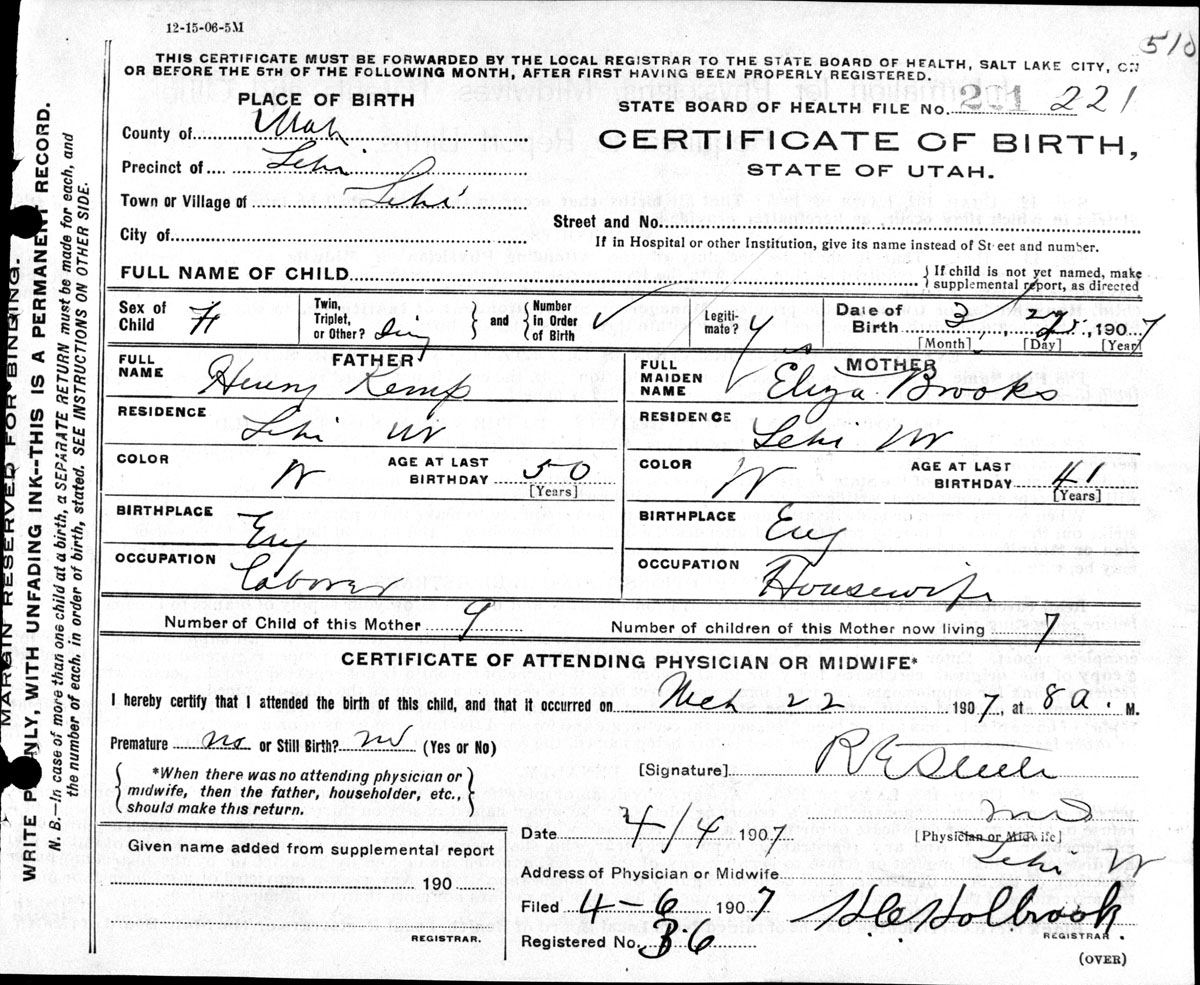 12-15-06-5M
510
THIS CERTIFICATE MUST BE FORWARDED BY THE LOCAL REGISTRAR TO THE STATE BOARD OF HEALTH, SALT LAKE CITY, ON
OR BEFORE THE 5TH OF THE FOLLOWING MONTH, AFTER FIRST HAVING BEEN PROPERLY REGISTERED.
PLACE OF BIRTH
STATE BOARD OF HEALTH FILE No. 221 221
County of Utah
CERTIFICATE OF BIRTH,
Precinct of Lehi
STATE OF UTAH.
Town or Village of Lehi
Street and No.
City of
If in Hospital or other Institution, give its name instead of Street and number.
FULL NAME OF CHILD
} If child is not yet named, make
supplemental report, as directed
Sex of Child F
Twin, Triplet, or Other? } and { Number in Order of Birth
Legitimate? Yes
Date of Birth 3, 22, 1907
[Month] [Day] [Year]
FATHER
FULL NAME Henry Kemp
MOTHER
FULL MAIDEN NAME Eliza Brooks
RESIDENCE Lehi Ut
RESIDENCE Lehi Ut
COLOR W AGE AT LAST BIRTHDAY 50 [Years]
COLOR W AGE AT LAST BIRTHDAY 41 [Years]
BIRTHPLACE Eng
BIRTHPLACE Eng
OCCUPATION Laborer
OCCUPATION Housewife
Number of Child of this Mother 9
Number of children of this Mother now living 7
CERTIFICATE OF ATTENDING PHYSICIAN OR MIDWIFE*
I hereby certify that I attended the birth of this child, and that it occurred on Mch 22 1907, at 8 a. M.
Premature no or Still Birth? no (Yes or No)
{ *When there was no attending physician or
midwife, then the father, householder, etc.,
should make this return. }
[Signature] R E Steele
M D
[Physician or Midwife]
Date 4/4 1907
Given name added from supplemental report
190
REGISTRAR.
Address of Physician or Midwife Lehi Ut
Filed 4-6 1907 H C Holbrook
REGISTRAR.
Registered No. 36
(OVER)
MARGIN RESERVED FOR BINDING.
WRITE PLAINLY, WITH UNFADING INK--THIS IS A PERMANENT RECORD.
N. B.—In case of more than one child at a birth, a SEPARATE RETURN must be made for each, and
the number of each, in order of birth, stated. SEE INSTRUCTIONS ON OTHER SIDE.